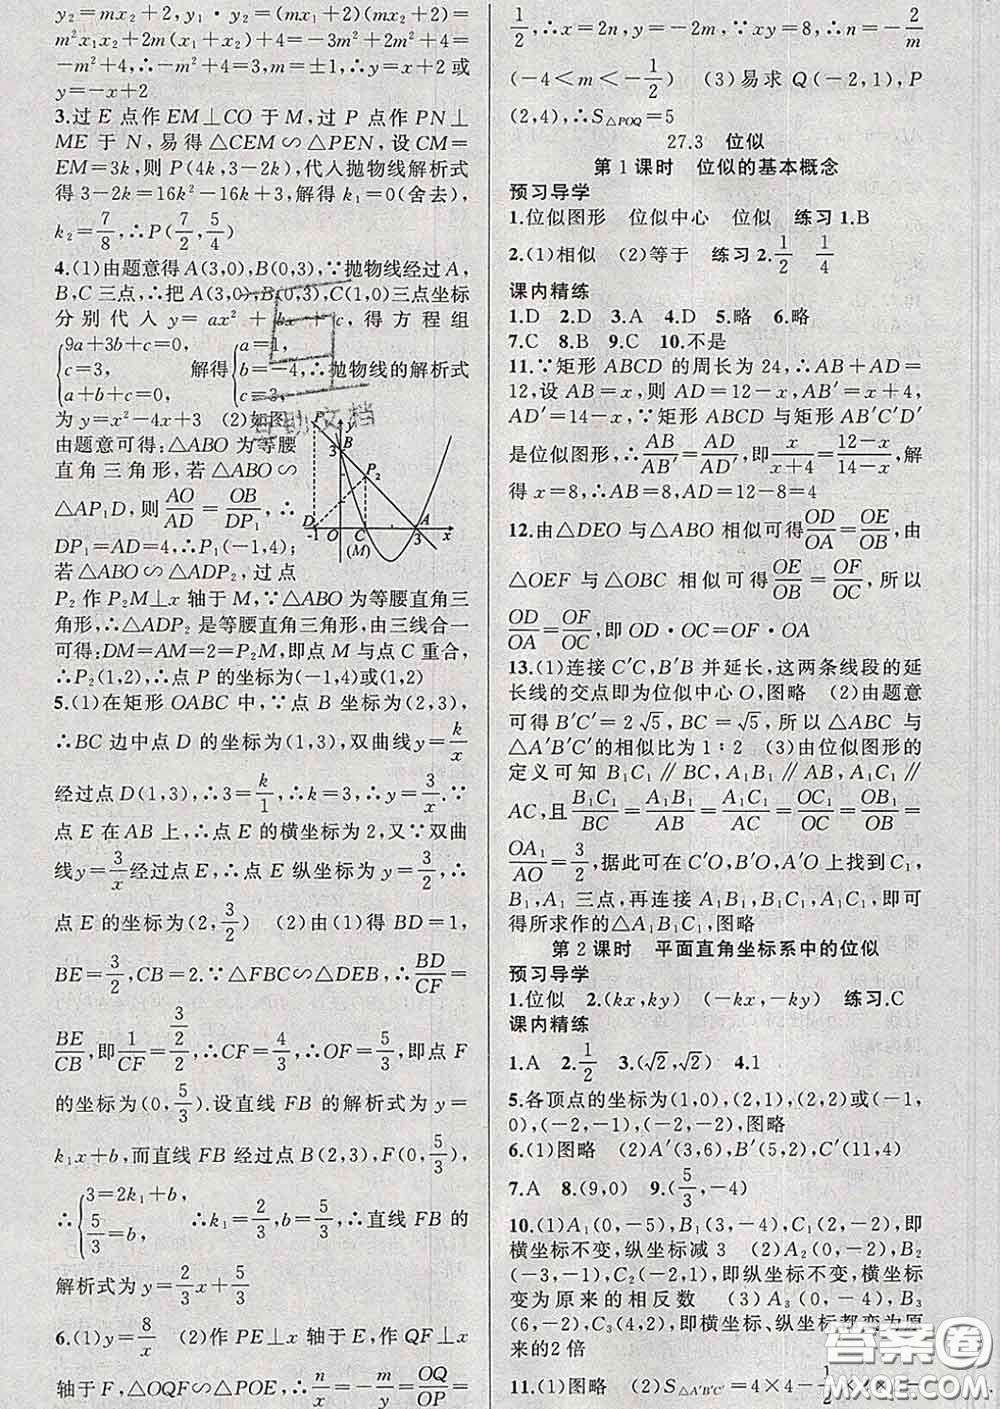 y₂=mx₂+2,y₁·y₂=(mx₁+2)(mx₂+2)=
m²x₁x₂+2m(x₁+x₂)+4=-3m²+2m²+4=
-m²+4,∴-m²+4=3,m=±1,∴y=x+2或
y=-x+2
3.过E点作EM⊥CO于M,过P点作PN⊥
ME于N,易得△CEM∽△PEN,设CM=
EM=3k,则P(4k,3-2k),代入抛物线解析式
得3-2k=16k²-16k+3,解得k₁=0(舍去),
k₂=7/8,∴P(7/2,5/4)
4.(1)由题意得A(3,0),B(0,3),∵抛物线经过A,
B,C三点,∴把A(3,0),B(0,3),C(1,0)三点坐标
分别代入y=ax²+bx+c,得方程组
{9a+3b+c=0, c=3, a+b+c=0, 解得{a=1, b=-4, c=3, ∴抛物线的解析式
为y=x²-4x+3 (2)如图,
由题意可得:△ABO为等腰
直角三角形,若△ABO∽
△AP₁D,则AO/AD=OB/DP₁,∴
DP₁=AD=4,∴P₁(-1,4);
若△ABO∽△ADP₂,过点
P₁ y B 3 P₂ D A -1 O C 3 x (M)
P₂作P₂M⊥x轴于M,∵△ABO为等腰直角三
角形,∴△ADP₂是等腰直角三角形,由三线合一
可得:DM=AM=2=P₂M,即点M与点C重合,
∴P₂(1,2),∴点P的坐标为(-1,4)或(1,2)
5.(1)在矩形OABC中,∵点B坐标为(2,3),
∴BC边中点D的坐标为(1,3),双曲线y=k/x
经过点D(1,3),∴3=k/1,∴k=3,∴y=3/x.∵
点E在AB上,∴点E的横坐标为2,又∵双曲
线y=3/x经过点E,∴点E纵坐标为y=3/2,∴
点E的坐标为(2,3/2) (2)由(1)得BD=1,
BE=3/2,CB=2.∵△FBC∽△DEB,∴BD/CF=
BE/CB,即1/CF=(3/2)/2,∴CF=4/3,∴OF=5/3,即点F
的坐标为(0,5/3).设直线FB的解析式为y=
k₁x+b,而直线FB经过点B(2,3),F(0,5/3),
∴{3=2k₁+b, 5/3=b, ∴k₁=2/3,b=5/3,∴直线FB的
解析式为y=2/3x+5/3
6.(1)y=8/x (2)作PE⊥x轴于E,作QF⊥x
轴于F,△OQF∽△POE,∴n/x=-m/y=OQ/OP=
1/2,∴x=2n,y=-2m,∵xy=8,∴n=-2/m
(-4<m<-1/2) (3)易求Q(-2,1),P
(2,4),∴S△POQ=5
27.3 位似
第1课时 位似的基本概念
预习导学
1.位似图形 位似中心 位似 练习1.B
2.(1)相似 (2)等于 练习2.1/2 1/4
课内精练
1.D 2.D 3.A 4.D 5.略 6.略
7.C 8.B 9.C 10.不是
11.∵矩形ABCD的周长为24,∴AB+AD=
12,设AB=x,则AD=12-x,AB′=x+4,
AD′=14-x,∵矩形ABCD与矩形AB′C′D′
是位似图形,∴AB/AB′=AD/AD′,即x/(x+4)=(12-x)/(14-x),解
得x=8,∴AB=8,AD=12-8=4
12.由△DEO与△ABO相似可得OD/OA=OE/OB,由
△OEF与△OBC相似可得OE/OB=OF/OC,所以
OD/OA=OF/OC,即OD·OC=OF·OA
13.(1)连接C′C,B′B并延长,这两条线段的延
长线的交点即为位似中心O,图略 (2)由题意
可得B′C′=2√5,BC=√5,所以△ABC与
△A′B′C′的相似比为1∶2 (3)由位似图形的
定义可知B₁C₁∥BC,A₁B₁∥AB,A₁C₁∥
AC,且B₁C₁/BC=A₁B₁/AB=A₁C₁/AC=OC₁/OC=OB₁/OB=
OA₁/AO=3/2,据此可在C′O,B′O,A′O上找到C₁,
B₁,A₁三点,再连接A₁B₁,B₁C₁,A₁C₁,即可
得所求作的△A₁B₁C₁,图略
第2课时 平面直角坐标系中的位似
预习导学
1.位似 2.(kx,ky) (-kx,-ky) 练习.C
课内精练
1.A 2.1/2 3.(√2,√2) 4.1
5.各顶点的坐标为(1,0),(2,1),(2,2)或(-1,
0),(-2,-1),(-2,-2),图略
6.(1)图略 (2)A′(3,6),B′(5,2),C′(11,4)
7.A 8.(9,0) 9.(5/3,-4)
10.(1)A₁(0,-5),B₁(3,-4),C₁(2,-2),即
横坐标不变,纵坐标减3 (2)A₂(0,-2),B₂
(-3,-1),C₂(-2,1),即纵坐标不变,横坐标
变为原来的相反数 (3)A₃(0,-4),B₃
(6,-2),C₃(4,2),即横坐标、纵坐标都变为原
来的2倍
11.(1)图略 (2)S△A′B′C′=4×4-1/2×2×2-
答案圈
MXQE.COM